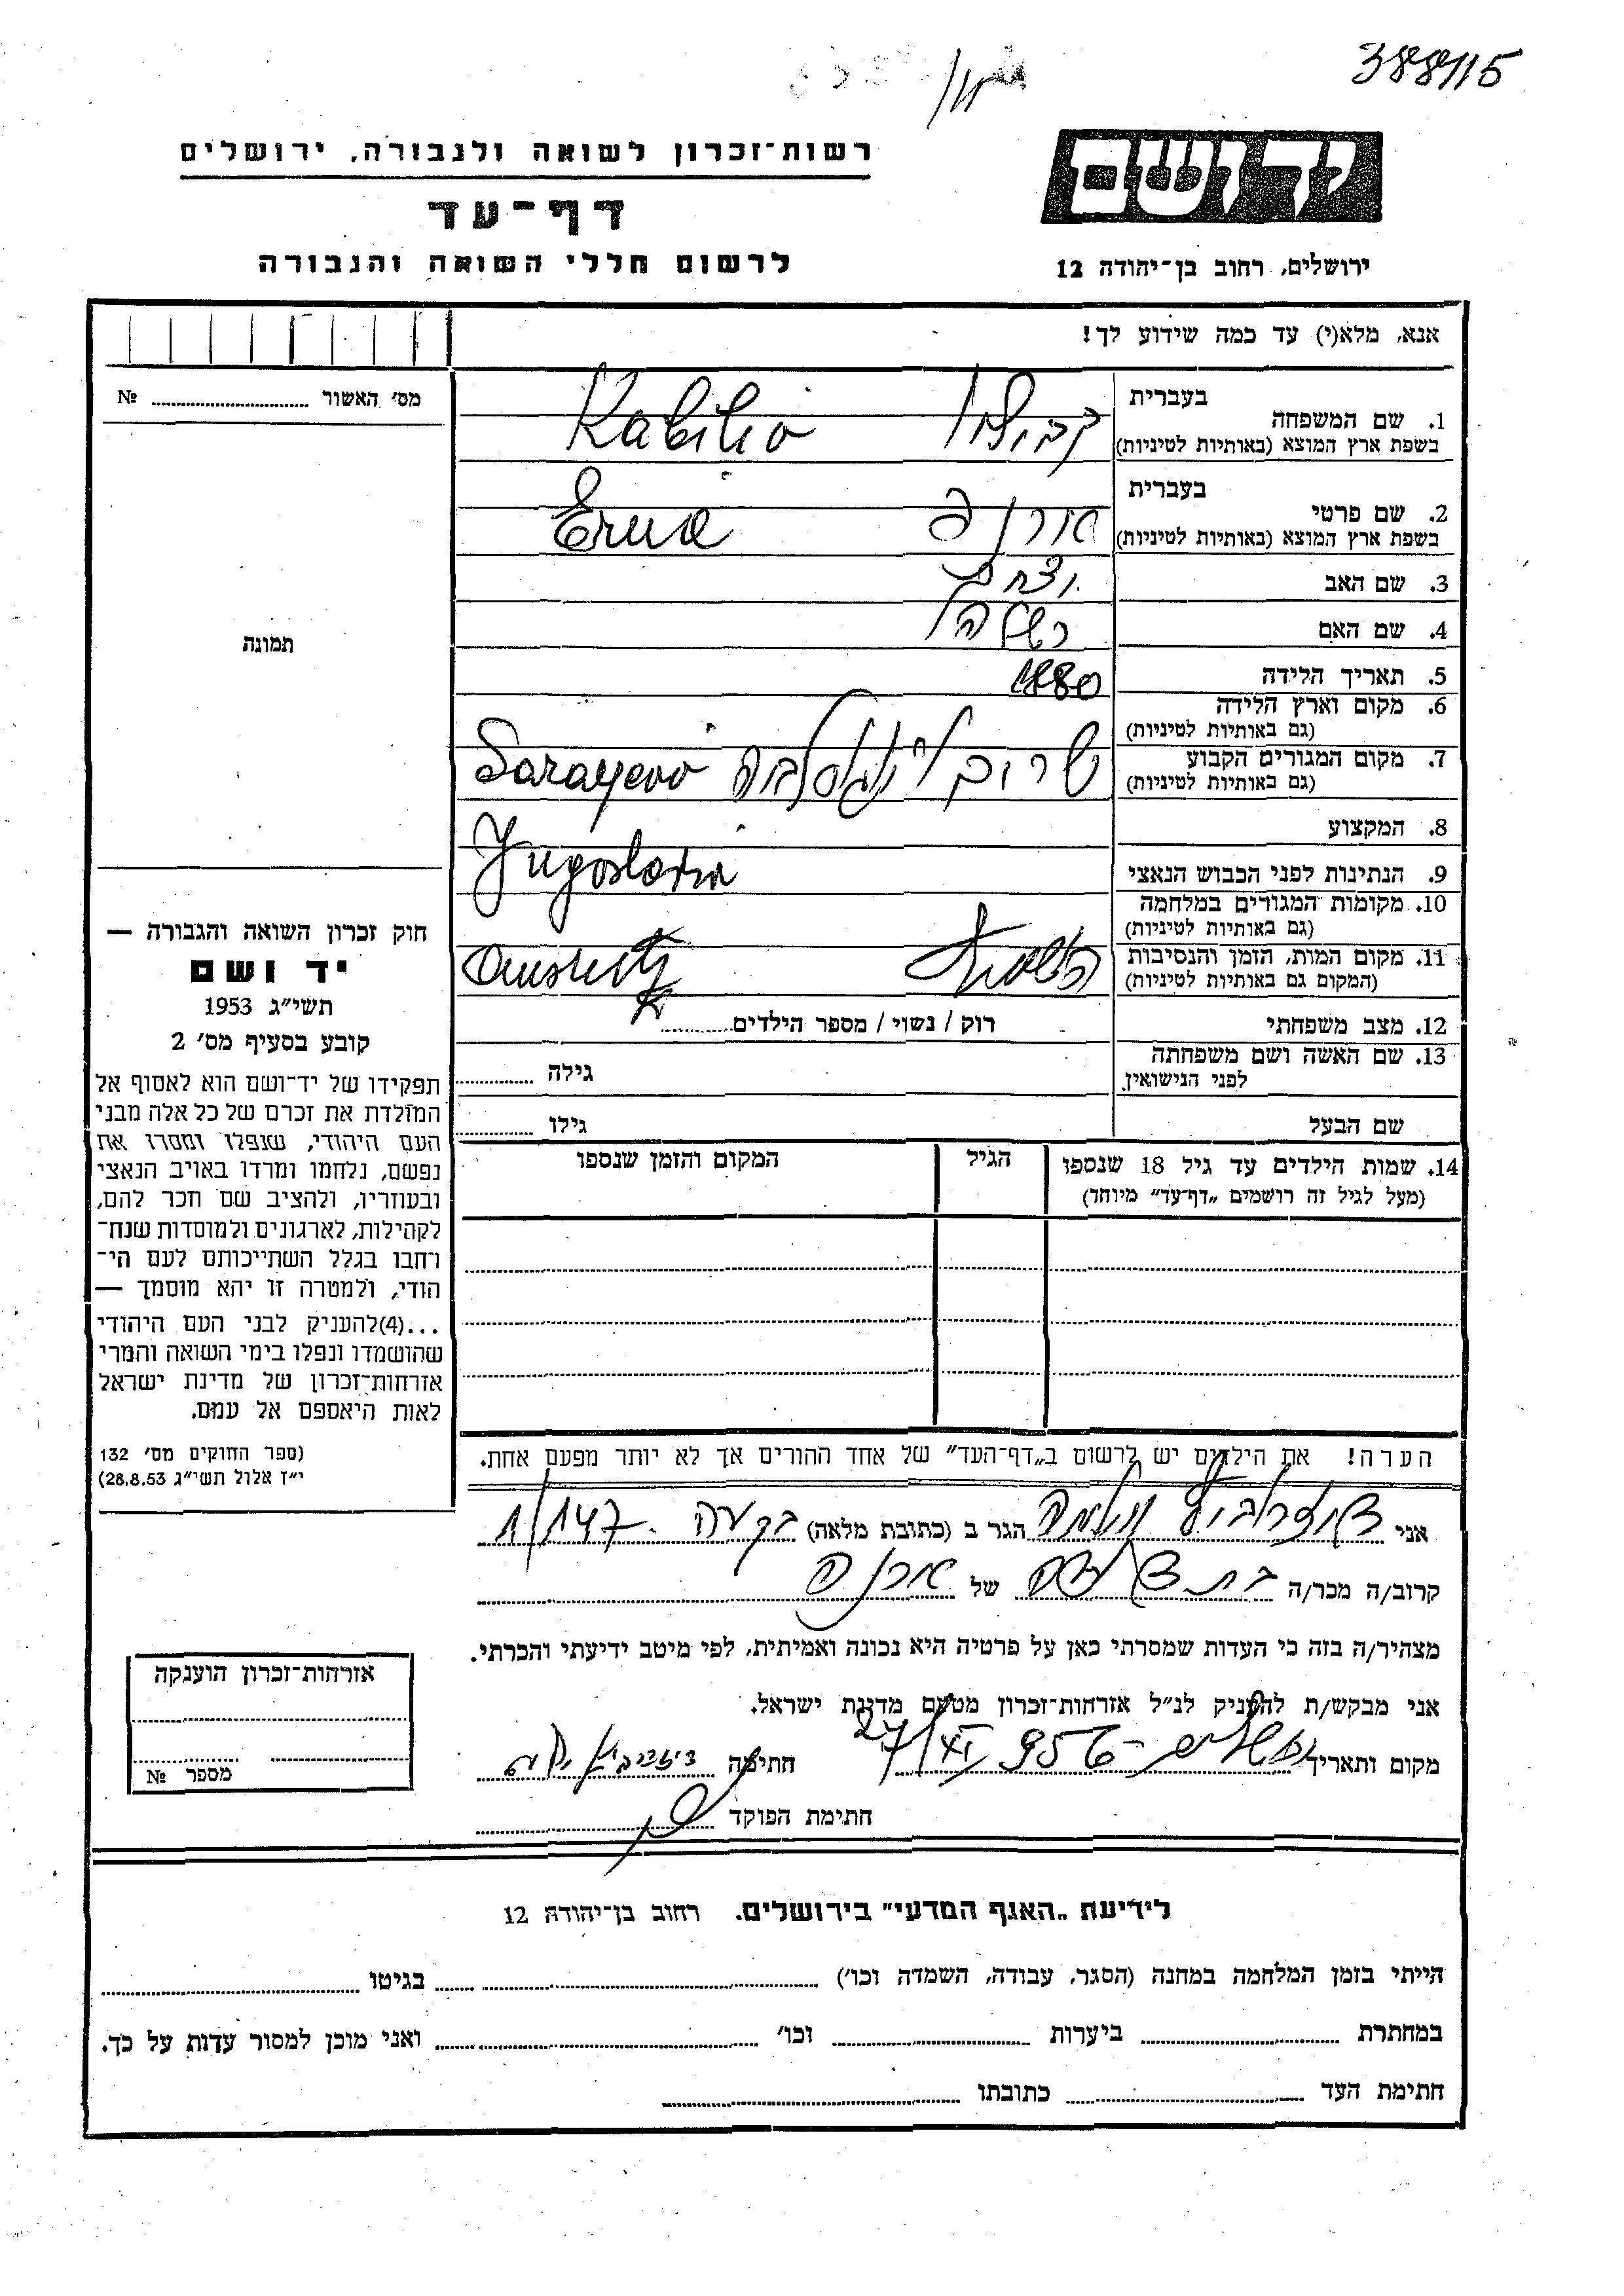 388115
רשות־זכרון לשואה ולגבורה, ירושלים
דף־עד
לרשום חללי השואה והגבורה
יד ושם
ירושלים, רחוב בן־יהודה 12
אנא, מלא(י) עד כמה שידוע לך!
מס׳ האשור № 
תמונה
1. שם המשפחה
בעברית
בשפת ארץ המוצא (באותיות לטיניות)
קבוליו Kabilio
2. שם פרטי
בעברית
בשפת ארץ המוצא (באותיות לטיניות)
ארנה Erna
3. שם האב
יצחק
4. שם האם
5. תאריך הלידה
1880
6. מקום וארץ הלידה
(גם באותיות לטיניות)
7. מקום המגורים הקבוע
(גם באותיות לטיניות)
יוגוסלביה Sarayevo
8. המקצוע
Yugoslavia
9. הנתינות לפני הכבוש הנאצי
10. מקומות המגורים במלחמה
(גם באותיות לטיניות)
11. מקום המות, הזמן והנסיבות
(המקום גם באותיות לטיניות)
12. מצב משפחתי
רוק / נשוי / מספר הילדים
13. שם האשה ושם משפחתה
לפני הנישואין
גילה
שם הבעל
גילו
14. שמות הילדים עד גיל 18 שנספו
(מעל לגיל זה רושמים „דף־עד” מיוחד)
הגיל
המקום והזמן שנספו
חוק זכרון השואה והגבורה —
יד ושם
תשי״ג 1953
קובע בסעיף מס׳ 2
תפקידו של יד־ושם הוא לאסוף אל
המולדת את זכרם של כל אלה מבני
העם היהודי, שנפלו ומסרו את
נפשם, נלחמו ומרדו באויב הנאצי
ובעוזריו, ולהציב שם וזכר להם,
לקהילות, לארגונים ולמוסדות שנח־
רבו בגלל השתייכותם לעם הי־
הודי, ולמטרה זו יהא מוסמך —
...(4)להעניק לבני העם היהודי
שהושמדו ונפלו בימי השואה והמרי
אזרחות־זכרון של מדינת ישראל
לאות היאספם אל עמם.
(ספר החוקים מס׳ 132
י״ז אלול תשי״ג 28,8,53)
הערה! את הילדים יש לרשום ב„דף־העד” של אחד ההורים אך לא יותר מפעם אחת.
אני הגר ב (כתובת מלאה) בקעה 147/1
קרוב/ה מכר/ה של ארנה
מצהיר/ה בזה כי העדות שמסרתי כאן על פרטיה היא נכונה ואמיתית, לפי מיטב ידיעתי והכרתי.
אני מבקש/ת להעניק לנ״ל אזרחות־זכרון מטעם מדינת ישראל.
מקום ותאריך ירושלים 27/XI 956 חתימה
חתימת הפוקד
אזרחות־זכרון הוענקה
מספר №
לידיעת „האגף המדעי” בירושלים. רחוב בן־יהודה 12
הייתי בזמן המלחמה במחנה (הסגר, עבודה, השמדה וכו׳) בגיטו
במחתרת ביערות וכו׳ ואני מוכן למסור עדות על כך.
חתימת העד כתובתו